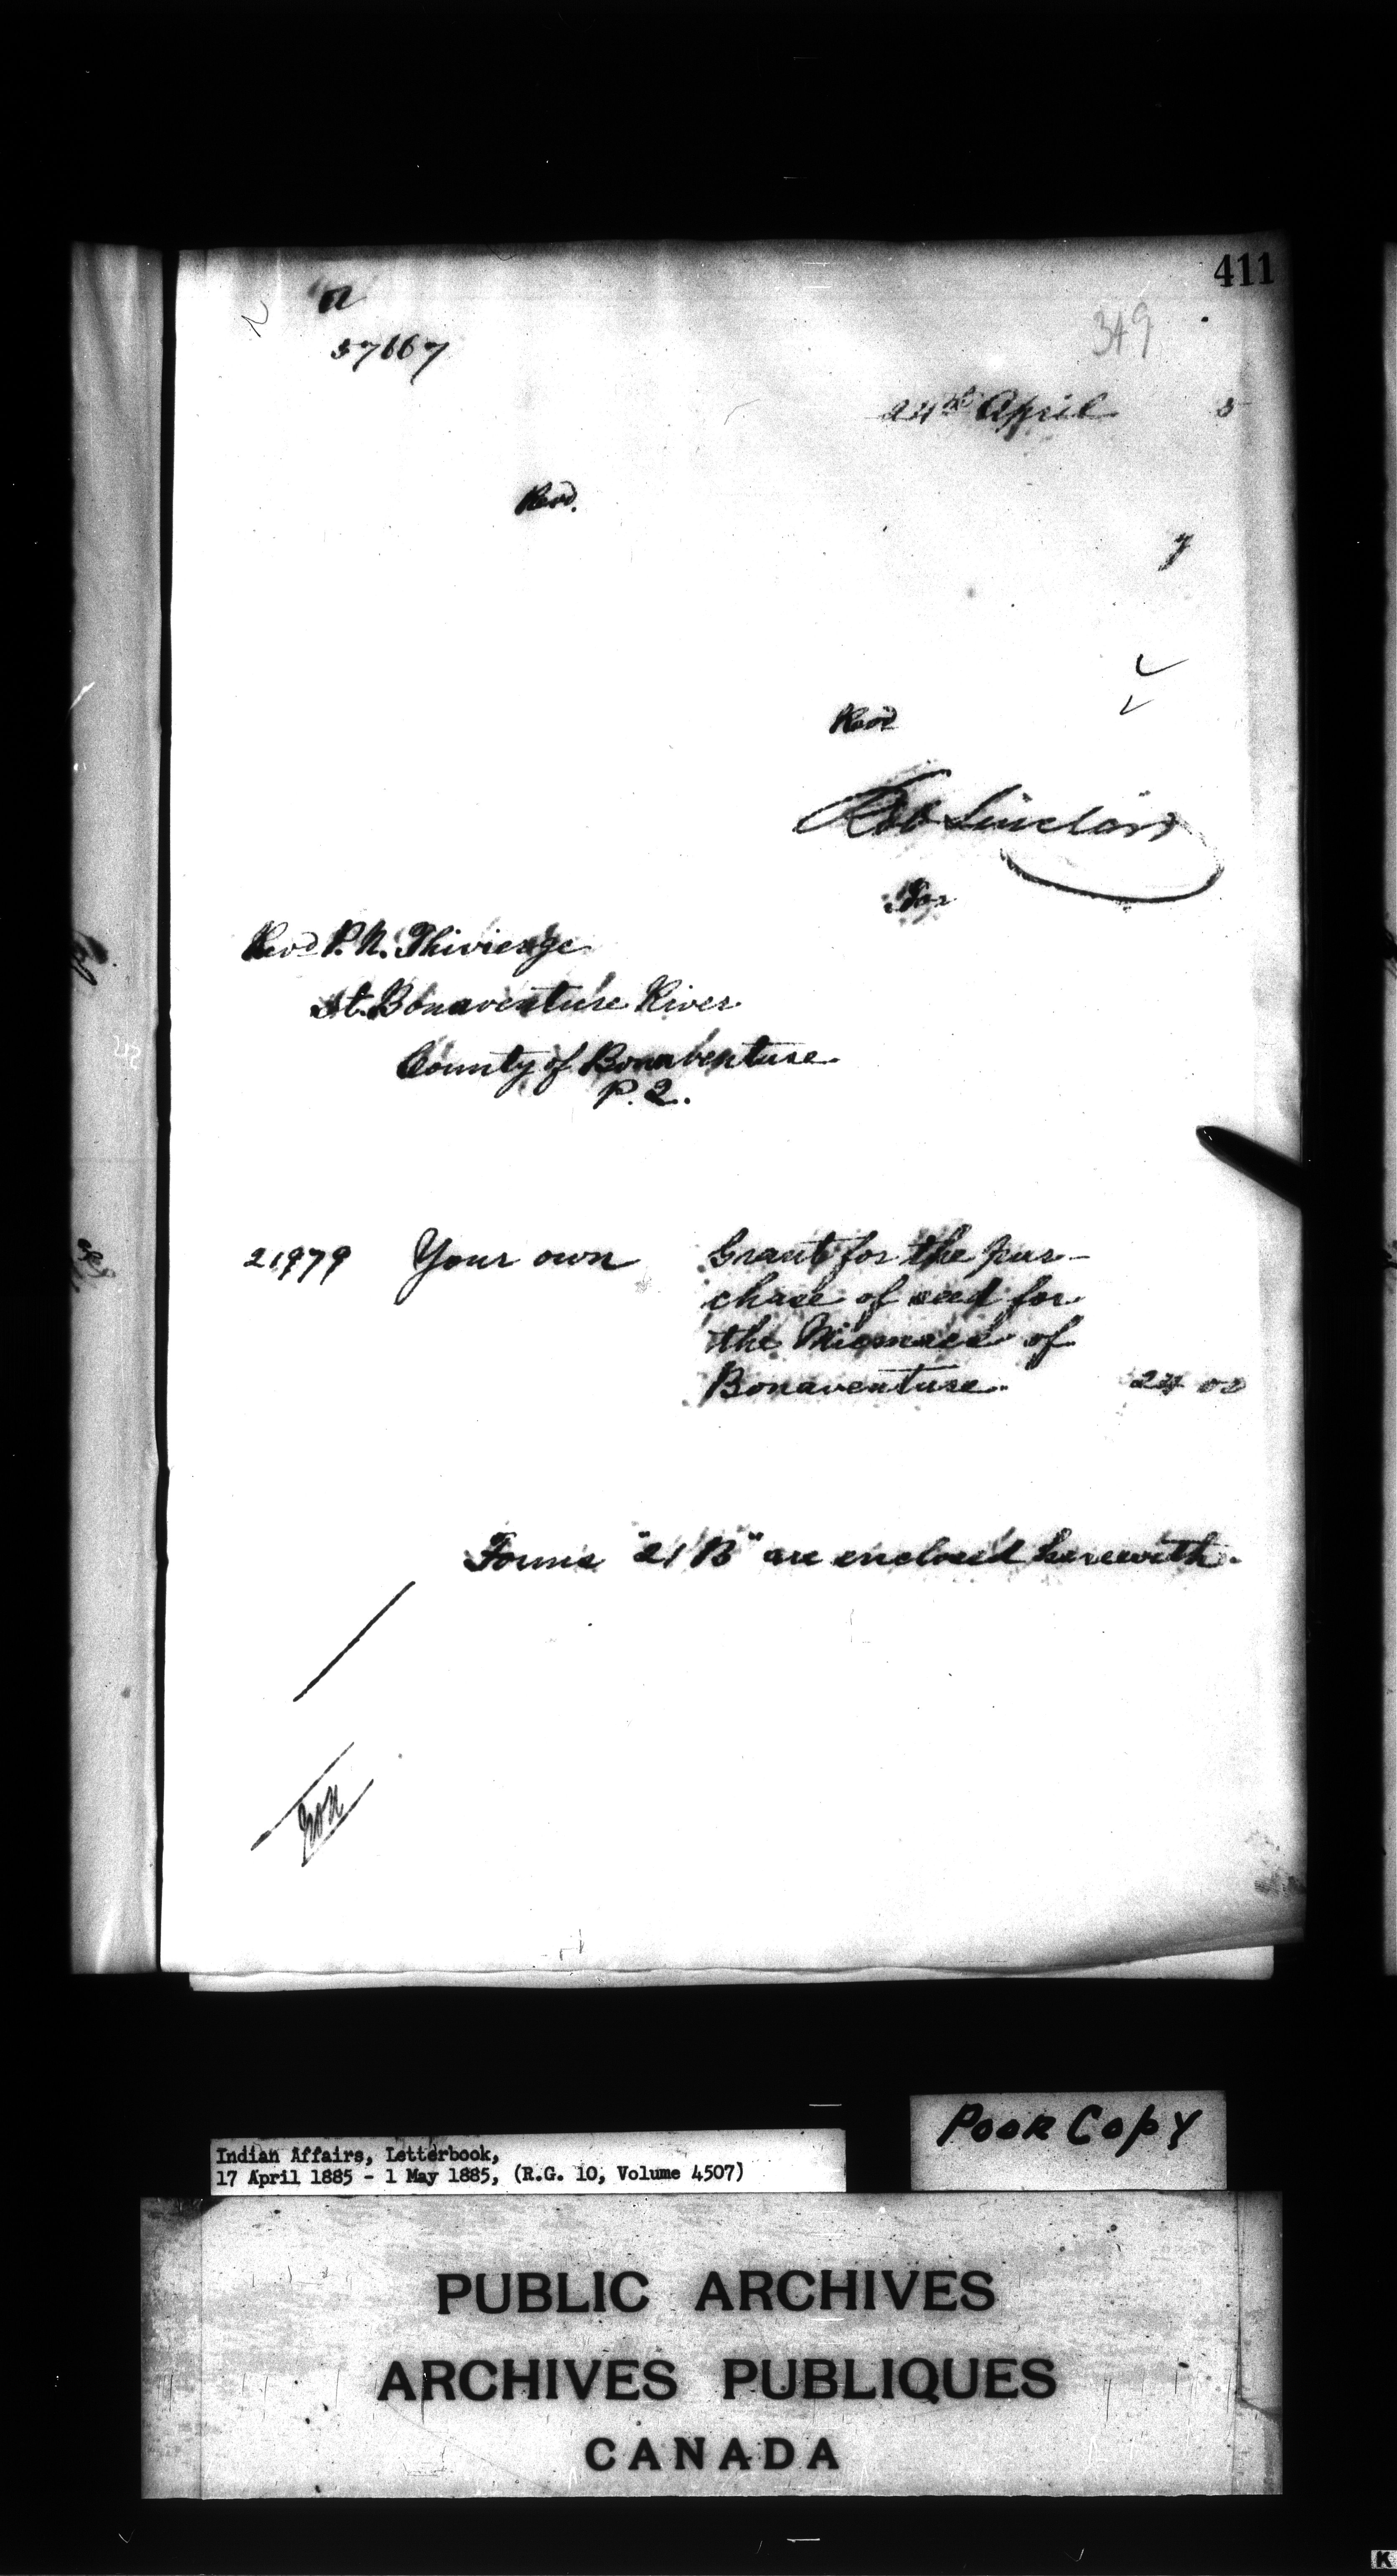 411
349
57667
24th April 5
Revd.
Revd
Rob Sinclair
for
Revd P. N. Thivierge
St. Bonaventure River
County of Bonaventure
P. Q.
21979 Your own Grant for the pur-
chase of seed for
the Micmacs of
Bonaventure. 24 00
Forms "21 B" are enclosed herewith.
Poor Copy
Indian Affairs, Letterbook,
17 April 1885 - 1 May 1885, (R.G. 10, Volume 4507)
PUBLIC ARCHIVES
ARCHIVES PUBLIQUES
CANADA